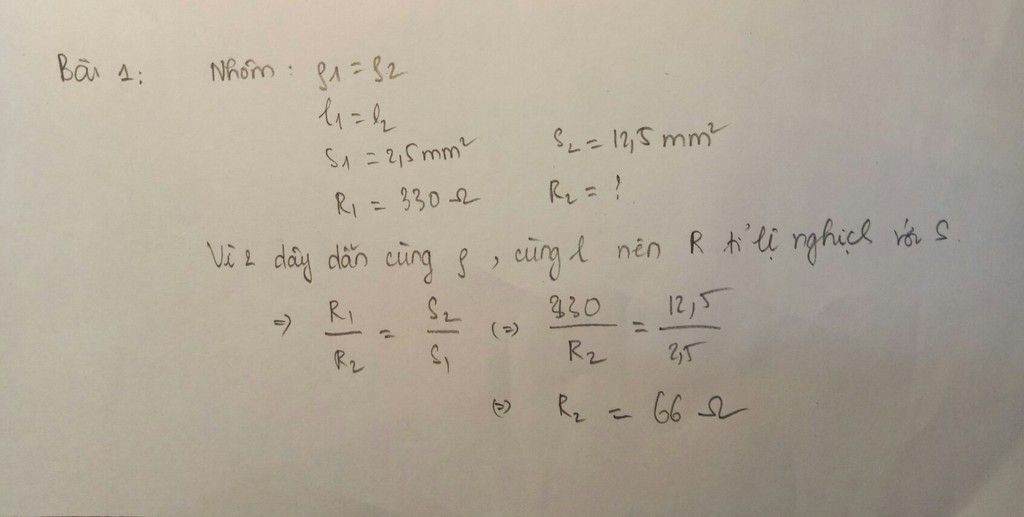 Bài 1: Nhôm: ρ1 = ρ2
l1 = l2
S1 = 2,5 mm² S2 = 12,5 mm²
R1 = 330 Ω R2 = ?
Vì 2 dây dẫn cùng ρ, cùng l nên R tỉ lệ nghịch với S.
=> R1/R2 = S2/S1 (=) 330/R2 = 12,5/2,5
(=) R2 = 66 Ω